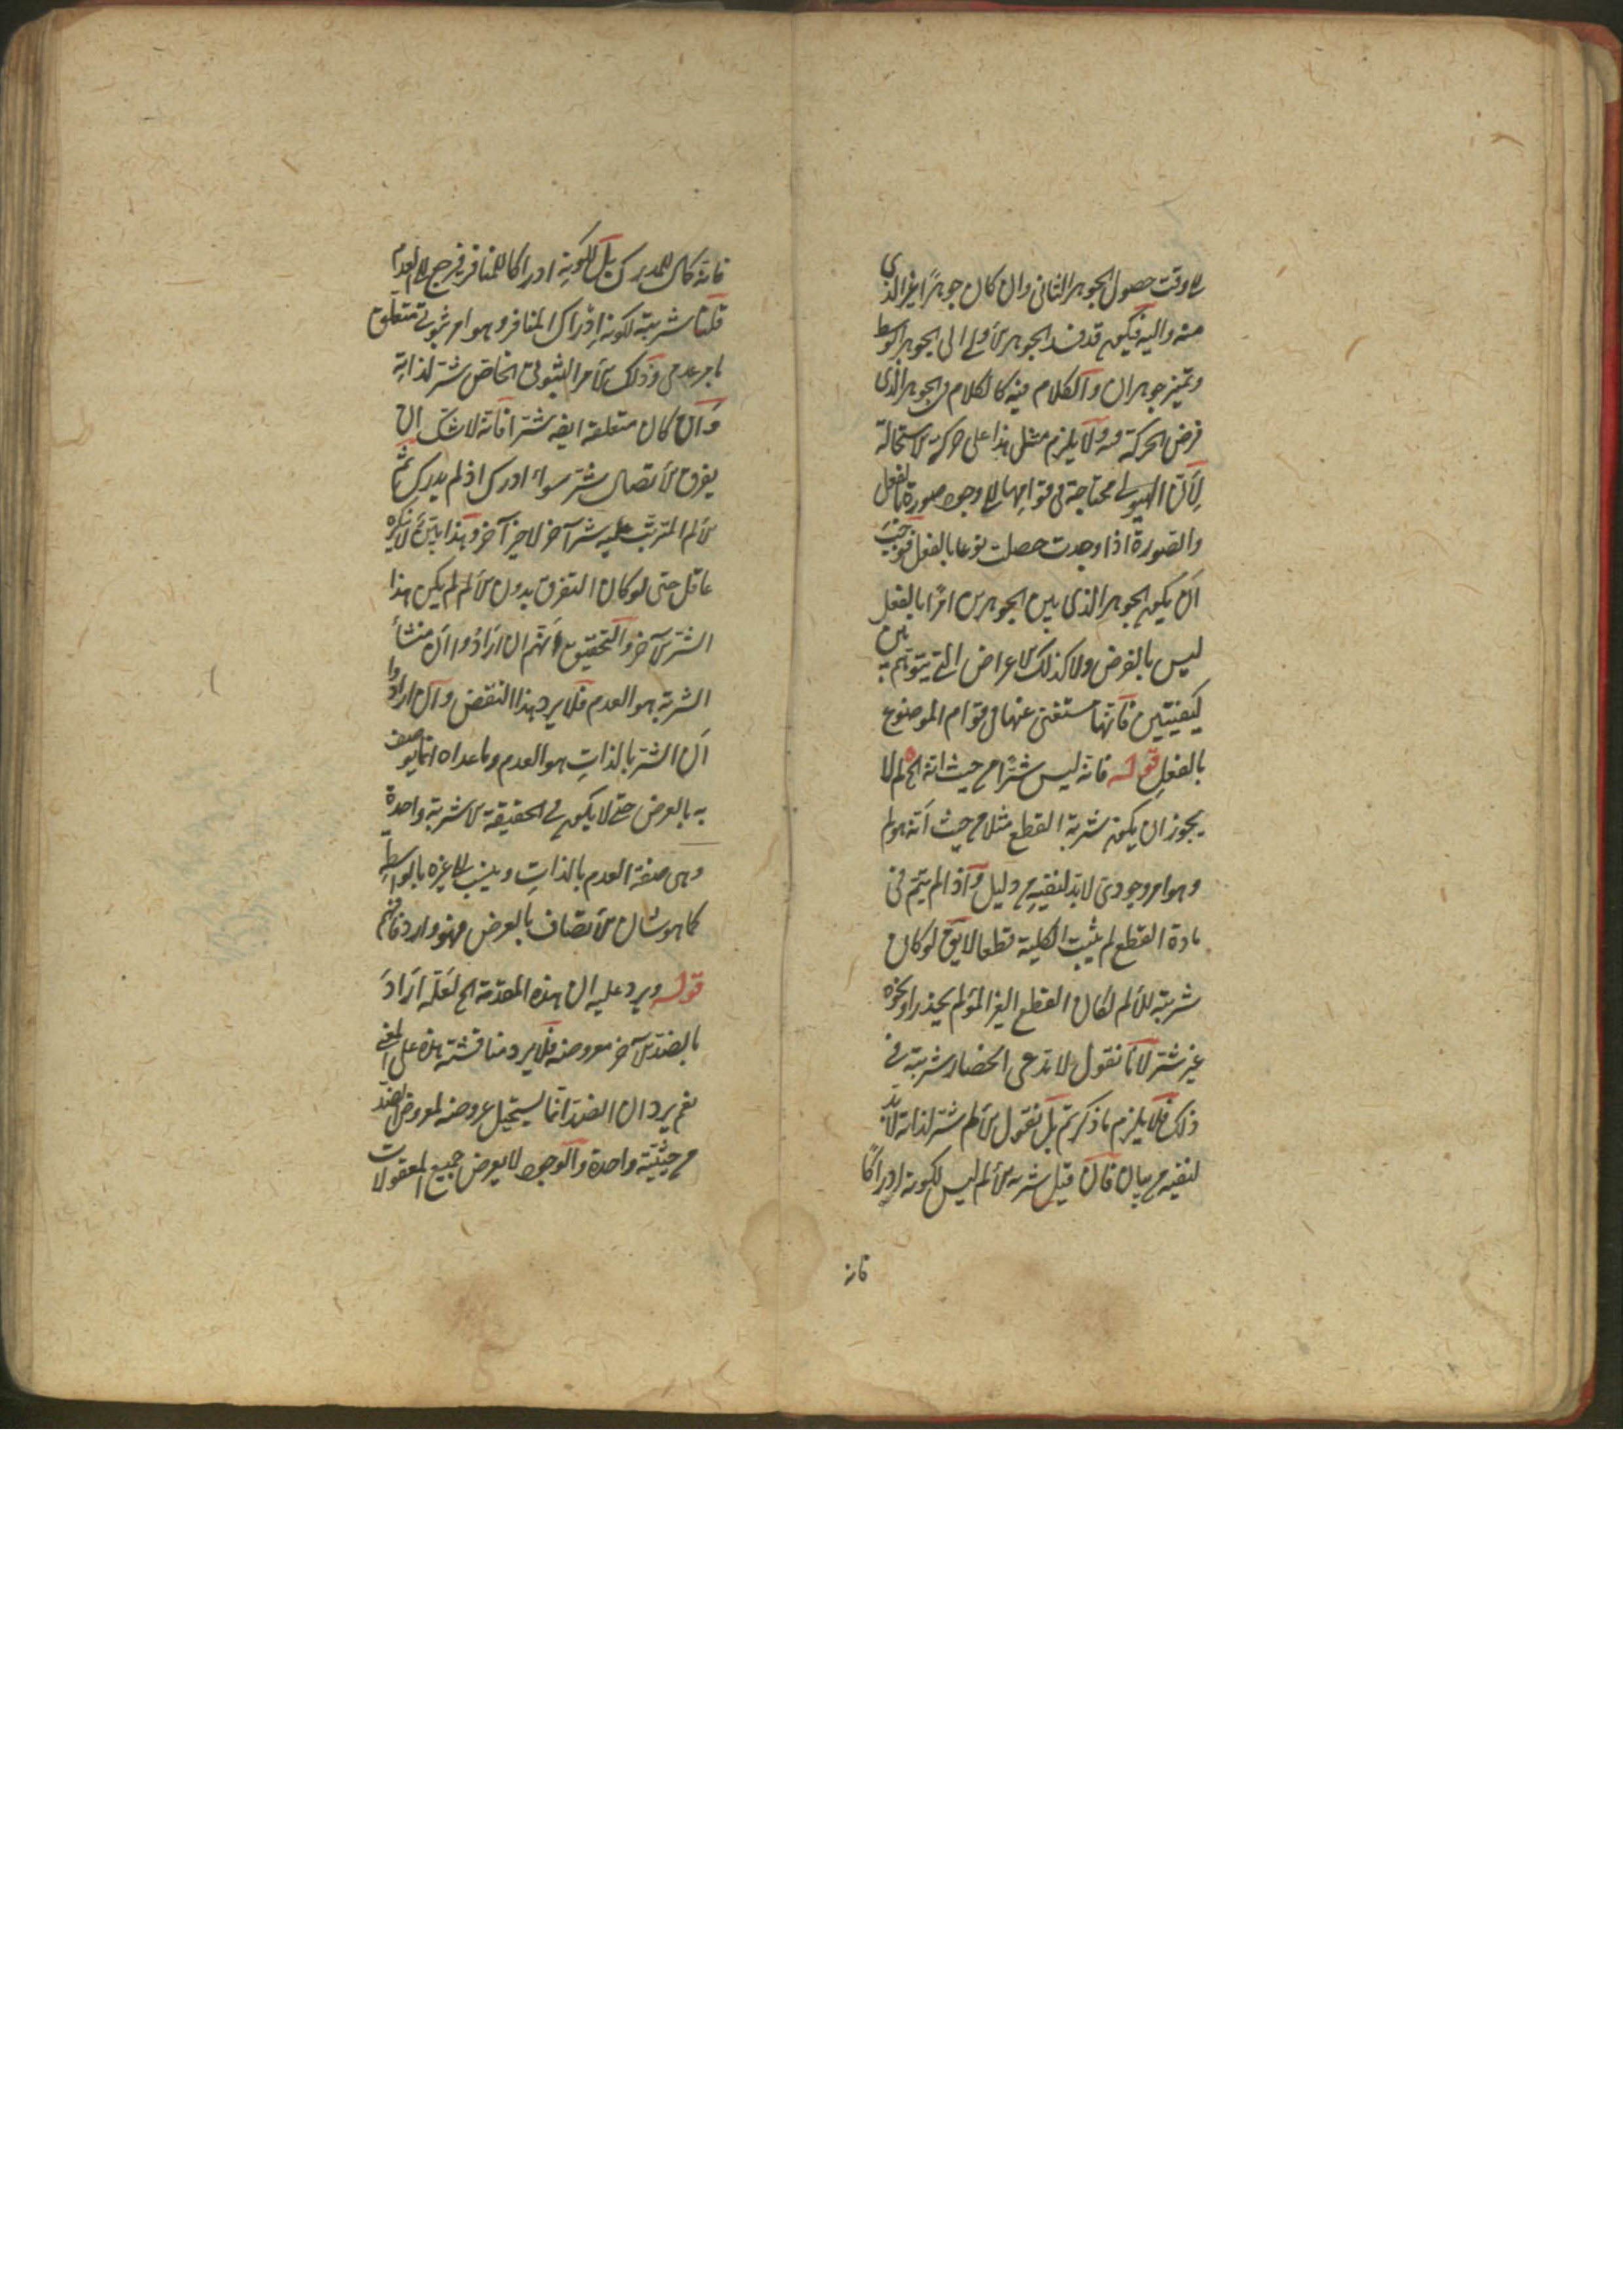 الى وقت حصول الجوهر الثانى وان كان جوهرًا غير الذي
منه واليه فيكون قد فسد الجوهر الأول الى الجوهر الوسط
وتميز جوهران والكلام فيه كالكلام فى الجوهر الذى
فرض الحركة منه ولا يلزم مثل هذا على حركة الاستحالة
لأن الهيولى محتاجة فى قوامها الى وجود صورة بالفعل
والصورة اذا وجدت حصلت نوعا بالفعل فوجب
ان يكون الجوهر الذى بين الجوهرين امرًا بالفعل
ليس بالفرض ولا كذلك الاعراض التى يتوهم بين
كيفيتين فانها مستغنى عنها فى قوام الموضوع
بالفعل قوله فانه ليس شرًّا من حيث انه الخ لم لا
يجوز ان يكون شرية القطع مثلا من حيث انه مولم
وهو امر وجودى لا بد لنفيه من دليل واذا لم يتم فى
مادة القطع لم يثبت الكلية قطعا لا يق لو كان
شرية للألم لكان القطع الغير المؤلم بخدر او نحوه
غير شر لأنا نقول لا ندعى انحصار شريته فى
ذلك فلا يلزم ما ذكرتم بل نقول الألم شر لذاته لا بد
لنفيه من بيان فان قيل شرية الألم ليس لكونه ادراكًا
فانه
فانه كمال للمدرك بل لكونه ادراكا للمنافر فيرجع الى العدم
قلنا شريته لكونه ادراك المنافر وهو امر ثبوتى متعلق
بامر عدمى وذلك الأمر الثبوتى الخاص شر لذاته
وان كان متعلقه ايضه شرا فانه لا شك ان
تفرق الأتصال شر سواء ادرك اذ لم يدرك ثم
الألم المترتب عليه شر آخر لا خير آخر وهذا بين لا ينكره
عاقل حتى لو كان التفرق بدون الألم لم يكن هذا
الشر الآخر والتحقيق انهم ان ارادوا ان منشأ
الشرية هو العدم فلا يرد هذا النقض وان ارادوا
ان الشر بالذات هو العدم وما عداه انما يوصف
به بالعرض حتى لا يكون فى الحقيقة الا شرية واحدة
وهى صفة العدم بالذات وينسب الى غيره بالواسطة
كما هو شان الأتصاف بالعرض فهو وارد فافهم
قوله ويرد عليه ان هذه المقدمة الخ لعله اراد
بالضد الآخر معروضه فلا يرد مناقشته هذه على المعنى
نعم يرد ان الضد انما يستحيل عروضه لمعروض الضد
من حيثية واحدة والوجود لا يعرض جميع المعقولات